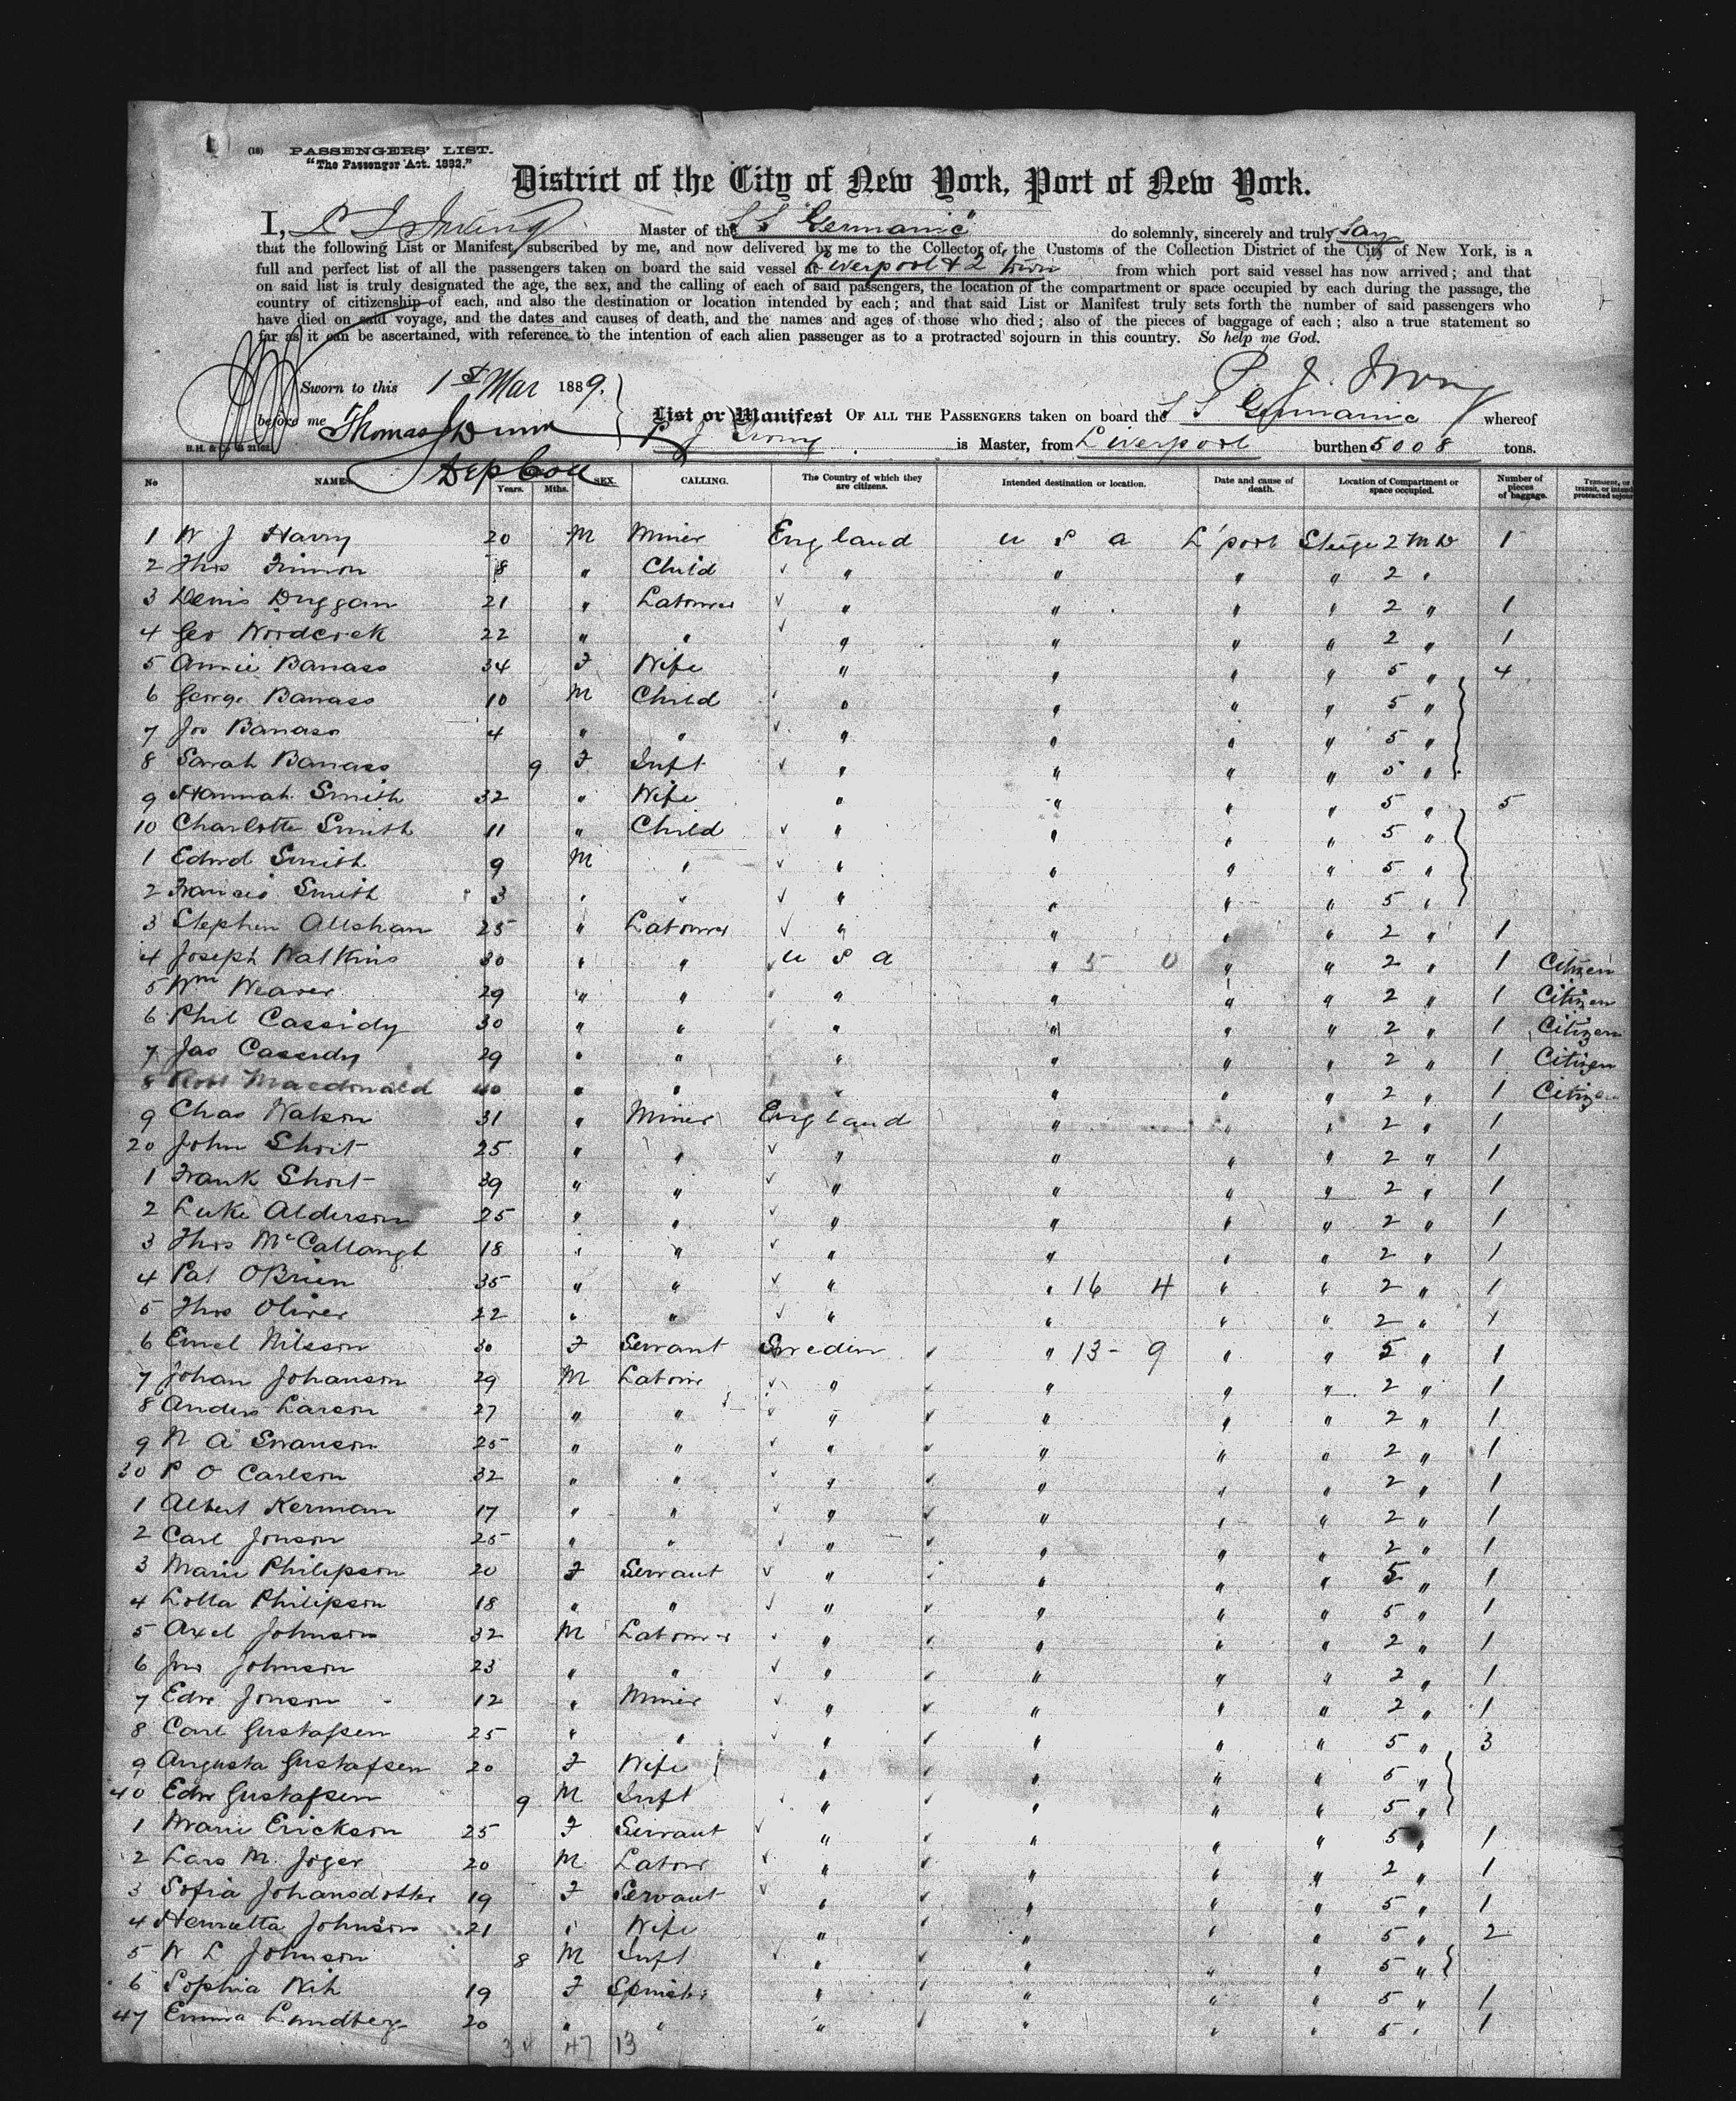 1
(18) PASSENGERS' LIST.
"The Passenger Act. 1882."
District of the City of New York, Port of New York.
I, Master of the S S "Germanic" do solemnly, sincerely and truly say
that the following List or Manifest, subscribed by me, and now delivered by me to the Collector of the Customs of the Collection District of the City of New York, is a
full and perfect list of all the passengers taken on board the said vessel at Liverpool & Q town from which port said vessel has now arrived; and that
on said list is truly designated the age, the sex, and the calling of each of said passengers, the location of the compartment or space occupied by each during the passage, the
country of citizenship of each, and also the destination or location intended by each; and that said List or Manifest truly sets forth the number of said passengers who
have died on said voyage, and the dates and causes of death, and the names and ages of those who died; also of the pieces of baggage of each; also a true statement so
far as it can be ascertained, with reference to the intention of each alien passenger as to a protracted sojourn in this country. So help me God.
Sworn to this 1st Mar 1889.
P. J. Irving
before me Thomas J Dunn
Dep Coll
List or Manifest OF ALL THE PASSENGERS taken on board the S S Germanic whereof
P J Irving is Master, from Liverpool burthen 5008 tons.
No NAMES Years. Mths. SEX. CALLING. The Country of which they are citizens. Intended destination or location. Date and cause of death. Location of Compartment or space occupied. Number of pieces of baggage.
1 W J Harry 20 M Miner England U S A L'pool Steige 2 M D 1
2 Thos 8 " Child " " " " 2 "
3 Denis Duggan 21 " Labourer " " " " 2 " 1
4 Geo Woodcock 22 " " " " " " 2 " 1
5 Annie Banass 34 F Wife " " " " 5 " 4
6 George Banass 10 M Child " " " " 5 "
7 Jos Banass 4 " " " " " " 5 "
8 Sarah Banass 9 F Inft " " " " 5 "
9 Hannah Smith 32 " Wife " " " " 5 " 5
10 Charlotte Smith 11 " Child " " " " 5 "
1 Edwd Smith 9 M " " " " " 5 "
2 Francis Smith 3 " " " " " " 5 "
3 Stephen Allsham 25 " Labourer " " " " 2 " 1
4 Joseph Watkins 30 " " U S A " 5 0 " " 2 " 1 Citizen
5 Wm Weaver 29 " " " " " " 2 " 1 Citizen
6 Phil Cassidy 30 " " " " " " 2 " 1 Citizen
7 Jas Cassidy 29 " " " " " " 2 " 1 Citizen
8 Robt Macdonald 40 " " " " " " 2 " 1 Citizen
9 Chas Watson 31 " Miner England " " " 2 " 1
20 John Short 25 " " " " " " 2 " 1
1 Frank Short 39 " " " " " " 2 " 1
2 Luke Alderson 25 " " " " " " 2 " 1
3 Thos McCallough 18 " " " " " " 2 " 1
4 Pat OBrien 35 " " " " 16 4 " " 2 " 1
5 Thos Oliver 22 " " " " " " 2 " 1
6 Emel Nilsson 30 F Servant Sweden " 13 - 9 " " 5 " 1
7 Johan Johanson 29 M Labour " " " " 2 " 1
8 Anders Larson 27 " " " " " " 2 " 1
9 N A Swanson 25 " " " " " " 2 " 1
30 P O Carlson 32 " " " " " " 2 " 1
1 Albert Kerman 17 " " " " " " 2 " 1
2 Carl Jonson 25 " " " " " " 2 " 1
3 Marie Philipson 20 F Servant " " " " 5 " 1
4 Lotta Philipson 18 " " " " " " 5 " 1
5 Axel Johnson 32 M Labourer " " " " 2 " 1
6 Jno Johnson 23 " " " " " " 2 " 1
7 Edw Jonson 12 " Miner " " " " 2 " 1
8 Carl Gustafsen 25 " " " " " " 5 " 3
9 Augusta Gustafsen 20 F Wife " " " " 5 "
40 Edw Gustafsen 9 M Inft " " " " 5 "
1 Marie Erickson 25 F Servant " " " " 5 " 1
2 Lars M. Joger 20 M Labour " " " " 2 " 1
3 Sofia Johansdotter 19 F Servant " " " " 5 " 1
4 Henrietta Johnson 21 " Wife " " " " 5 " 2
5 W L Johnson 8 M Inft " " " " 5 "
6 Sophia 19 F Spinster " " " " 5 " 1
47 Emma Lundberg 20 " " " " " " 5 " 1
34 47 13